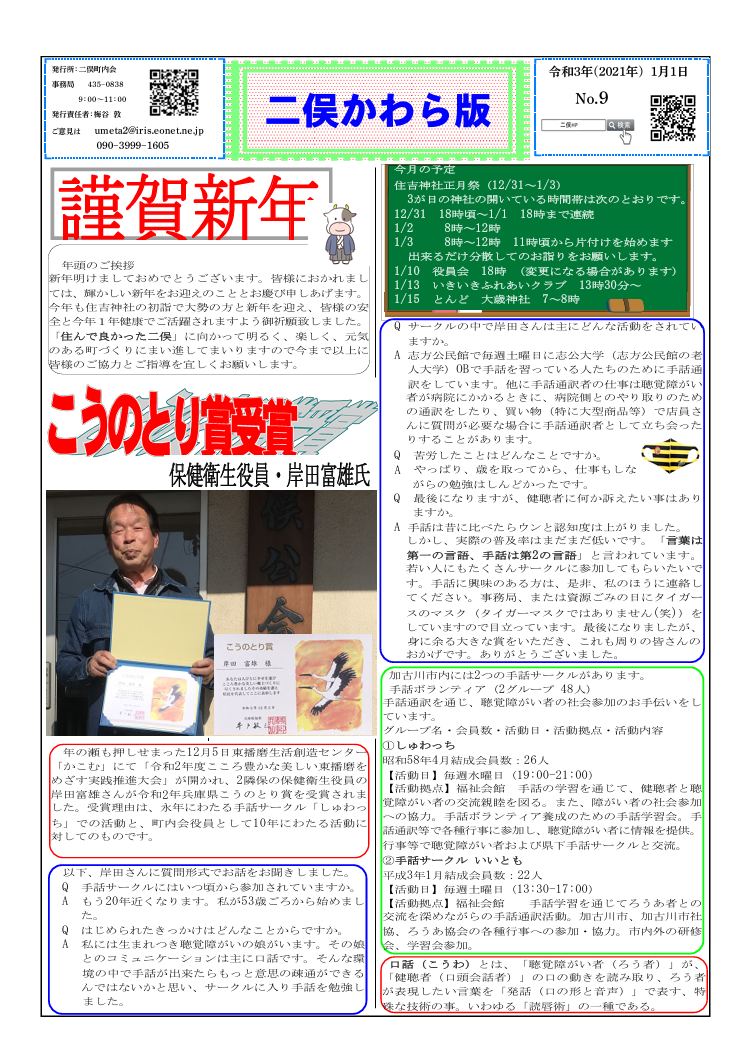 発行所：二俣町内会
事務局　435-0838
9：00～11：00
発行責任者：梅谷 敦
ご意見は　umeta2@iris.eonet.ne.jp
090-3999-1605
二俣かわら版
令和3年(2021年) 1月1日
No.9
二俣HP
検索
謹賀新年
年頭のご挨拶
新年明けましておめでとうございます。皆様におかれまし
ては、輝かしい新年をお迎えのこととお慶び申しあげます。
今年も住吉神社の初詣で大勢の方と新年を迎え、皆様の安
全と今年１年健康でご活躍されますよう御祈願致しました。
「住んで良かった二俣」に向かって明るく、楽しく、元気
のある町づくりにまい進してまいりますので今まで以上に
皆様のご協力とご指導を宜しくお願いします。
こうのとり賞受賞
保健衛生役員・岸田富雄氏
こうのとり賞
岸田 富雄 様
年の瀬も押しせまった12月5日東播磨生活創造センター
「かこむ」にて「令和2年度こころ豊かな美しい東播磨を
めざす実践推進大会」が開かれ、2隣保の保健衛生役員の
岸田富雄さんが令和2年兵庫県こうのとり賞を受賞されま
した。受賞理由は、永年にわたる手話サークル「しゅわっ
ち」での活動と、町内会役員として10年にわたる活動に
対してのものです。
以下、岸田さんに質問形式でお話をお聞きしました。
Q　手話サークルにはいつ頃から参加されていますか。
A　もう20年近くなります。私が53歳ごろから始めまし
た。
Q　はじめられたきっかけはどんなことからですか。
A　私には生まれつき聴覚障がいの娘がいます。その娘
とのコミュニケーションは主に口話です。そんな環
境の中で手話が出来たらもっと意思の疎通ができる
んではないかと思い、サークルに入り手話を勉強し
ました。
今月の予定
住吉神社正月祭（12/31～1/3）
3が日の神社の開いている時間帯は次のとおりです。
12/31　18時頃～1/1　18時まで連続
1/2　　8時～12時
1/3　　8時～12時　11時頃から片付けを始めます
出来るだけ分散してのお詣りをお願いします。
1/10　役員会　18時　（変更になる場合があります）
1/13　いきいきふれあいクラブ　13時30分～
1/15　とんど　大歳神社　7～8時
Q サークルの中で岸田さんは主にどんな活動をされてい
ますか。
A 志方公民館で毎週土曜日に志公大学（志方公民館の老
人大学）OBで手話を習っている人たちのために手話通
訳をしています。他に手話通訳者の仕事は聴覚障がい
者が病院にかかるときに、病院側とのやり取りのため
の通訳をしたり、買い物（特に大型商品等）で店員さ
んに質問が必要な場合に手話通訳者として立ち会った
りすることがあります。
Q　苦労したことはどんなことですか。
A　やっぱり、歳を取ってから、仕事もしな
がらの勉強はしんどかったです。
Q　最後になりますが、健聴者に何か訴えたい事はあり
ますか。
A 手話は昔に比べたらウンと認知度は上がりました。
しかし、実際の普及率はまだまだ低いです。「言葉は
第一の言語、手話は第2の言語」と言われています。
若い人にもたくさんサークルに参加してもらいたいで
す。手話に興味のある方は、是非、私のほうに連絡し
てください。事務局、または資源ごみの日にタイガー
スのマスク（タイガーマスクではありません(笑)）を
していますので目立っています。最後になりましたが、
身に余る大きな賞をいただき、これも周りの皆さんの
おかげです。ありがとうございました。
加古川市内には2つの手話サークルがあります。
手話ボランティア（2グループ 48人）
手話通訳を通じ、聴覚障がい者の社会参加のお手伝いをし
ています。
グループ名・会員数・活動日・活動拠点・活動内容
①しゅわっち
昭和58年4月結成会員数：26人
【活動日】毎週水曜日（19:00-21:00）
【活動拠点】福祉会館　手話の学習を通じて、健聴者と聴
覚障がい者の交流親睦を図る。また、障がい者の社会参加
への協力。手話ボランティア養成のための手話学習会。手
話通訳等で各種行事に参加し、聴覚障がい者に情報を提供。
行事等で聴覚障がい者および県下手話サークルと交流。
②手話サークル いいとも
平成3年1月結成会員数：22人
【活動日】毎週土曜日（13:30-17:00）
【活動拠点】福祉会館　　手話学習を通じてろうあ者との
交流を深めながらの手話通訳活動。加古川市、加古川市社
協、ろうあ協会の各種行事への参加・協力。市内外の研修
会、学習会参加。
口話（こうわ）とは、「聴覚障がい者（ろう者）」が、
「健聴者（口頭会話者）」の口の動きを読み取り、ろう者
が表現したい言葉を「発話（口の形と音声）」で表す、特
殊な技術の事。いわゆる「読唇術」の一種である。